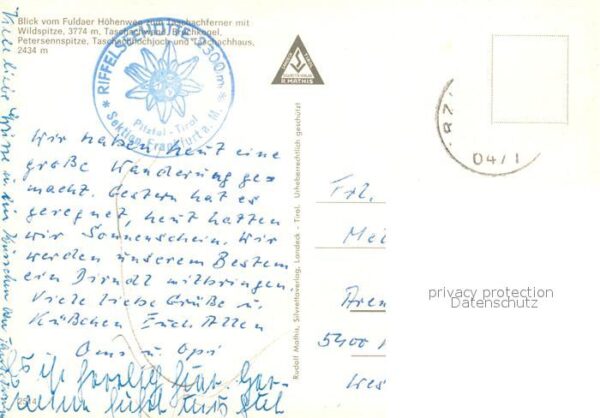 Blick vom Fuldaer Höhenweg zum Taschachferner mit
Wildspitze, 3774 m, Taschachwand, Bruchkogel,
Petersennspitze, Taschachhochjoch und Taschachhaus,
2434 m
RIFFELSEEHÜTTE 2300m
Pitztal - Tirol
Sektion Frankfurt a. M.
R. MATHIS
Wir haben heut eine
große Wanderung ge-
macht. Gestern hat es
geregnet, heut hatten
wir Sonnenschein. Wir
werden unserem Bestem
ein Dirndl mitbringen.
Viele liebe Grüße u.
Küßchen Euch Allen
Oma u. Opi
Es ist herrlich hier
fühlt uns gut
Viele liebe Grüße u. ein Küsschen
Rudolf Mathis, Silvrettaverlag, Landeck - Tirol. Urheberrechtlich geschützt
Frl.
Mei
Aren
5400
Wes
04/1
privacy protection
Datenschutz